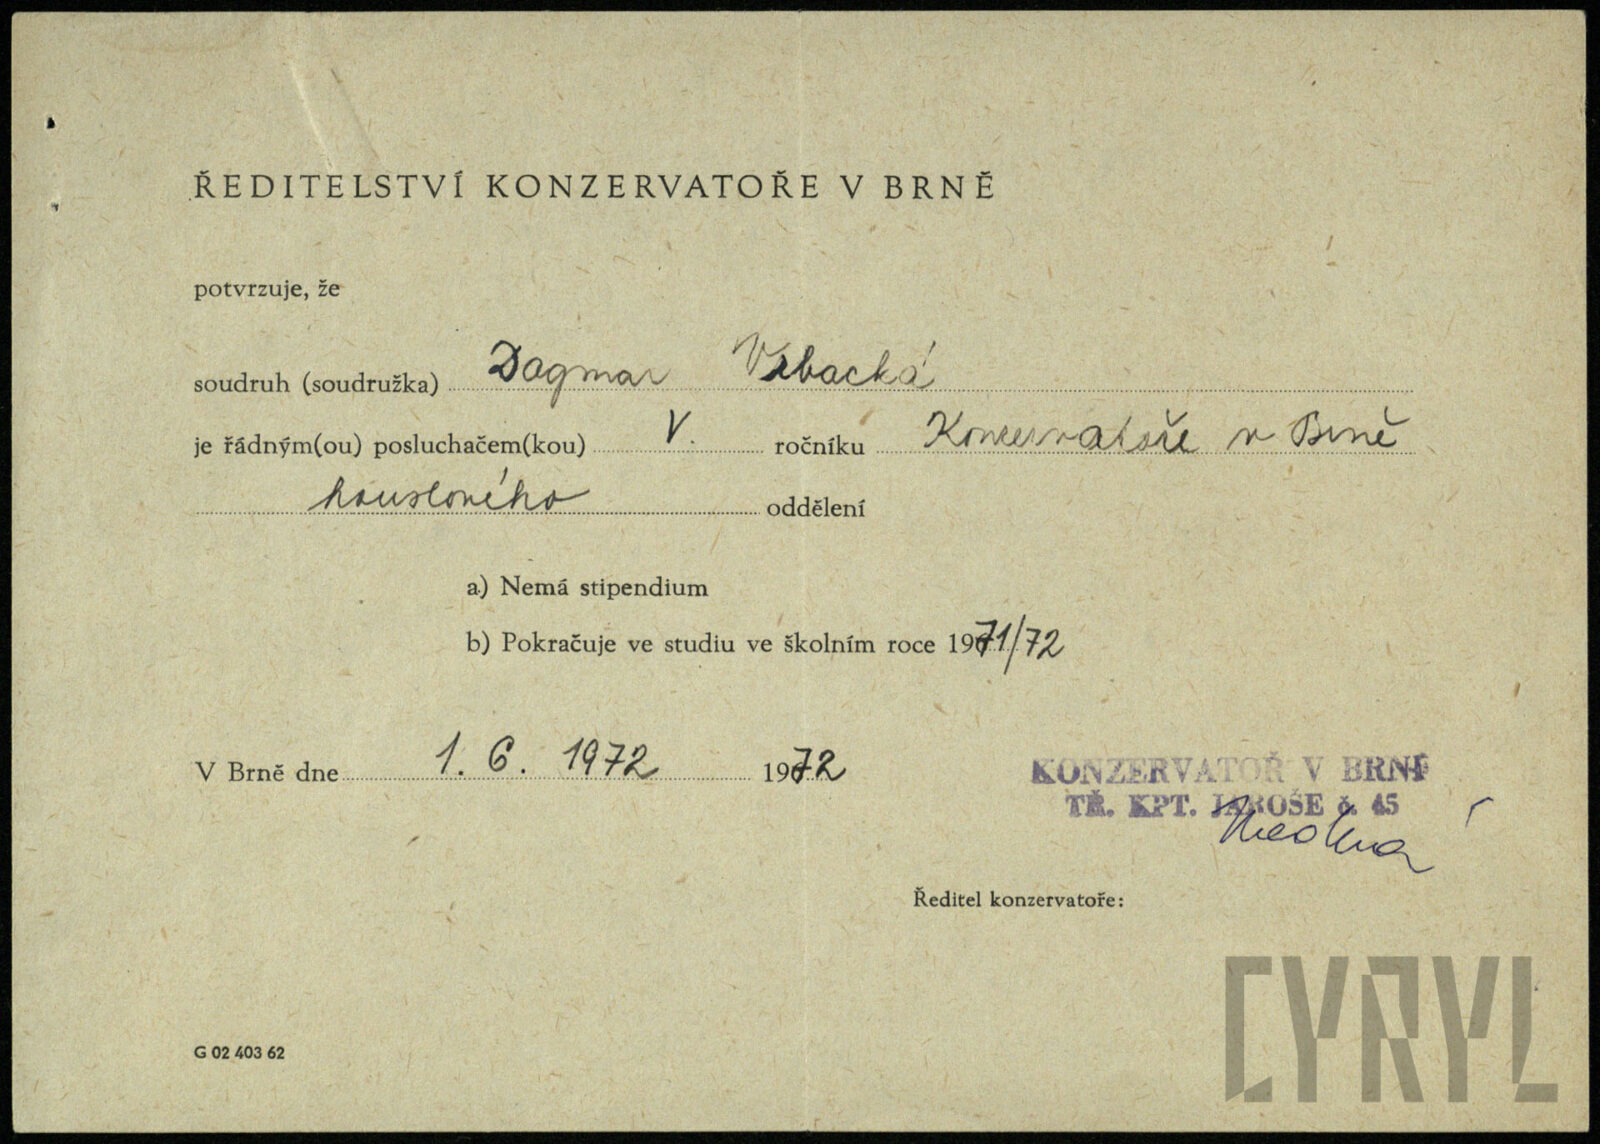 ŘEDITELSTVÍ KONZERVATOŘE V BRNĚ
potvrzuje, že
soudruh (soudružka) Dagmar Vrbacká
je řádným(ou) posluchačem(kou) V. ročníku Konzervatoře v Brně
houslového oddělení
a) Nemá stipendium
b) Pokračuje ve studiu ve školním roce 1971/72
V Brně dne 1. 6. 1972 1972
KONZERVATOŘ V BRNĚ
TŘ. KPT. JAROŠE č. 45
Ředitel konzervatoře:
G 02 403 62
CYRYL